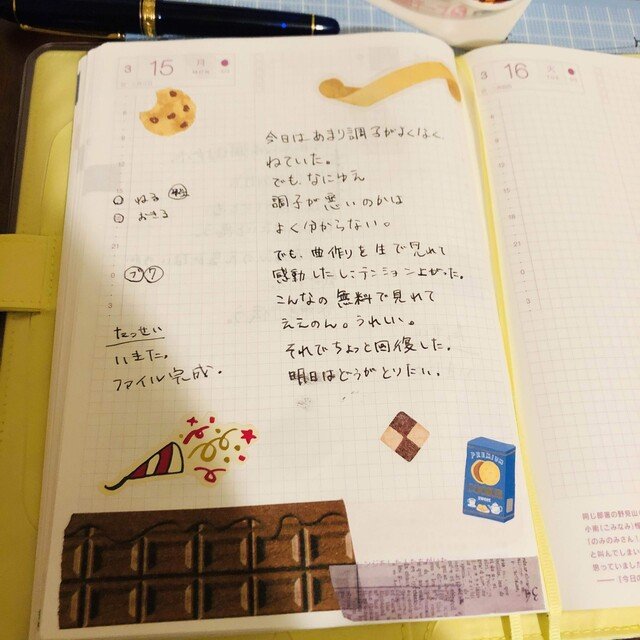 3 15 月
3 16 火
今日はあまり調子がよくなく、
ねていた。
でも、なにゆえ
調子が悪いのかは
よく分からない。
でも、曲作りを生で見れて
感動したしテンション上がった。
こんなの無料で見れて
ええのん。うれしい。
それでちょっと回復した。
明日はどうがとりたい。
ねる
おきる
ブ ク
たっせい
いきた。
ファイル完成。
PREMIUM
同じ部署の野見山
小南(こみなみ)
「のみのみさん!
と叫んでしまい
思っていました
──『今日